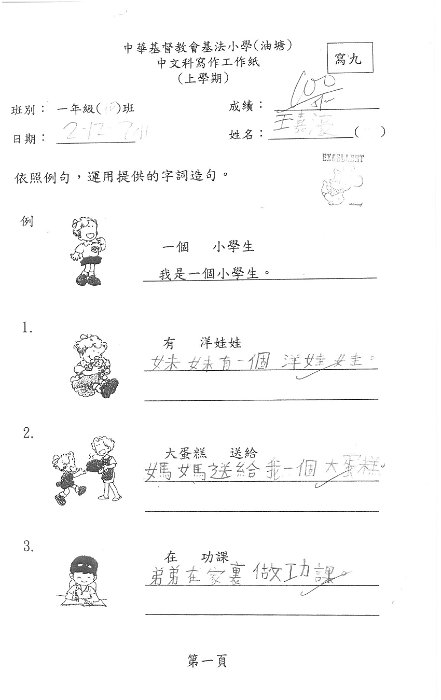 中華基督教會基法小學(油塘)
中文科寫作工作紙
(上學期)
寫九
班別： 一年級( )班
成績： 100
日期： 2-12
姓名： 王嘉 ( )
EXCELLENT
依照例句，運用提供的字詞造句。
例
一個 小學生
我是一個小學生。
1.
有 洋娃娃
妹妹有一個洋娃娃。
2.
大蛋糕 送給
媽媽送給我一個大蛋糕。
3.
在 功課
弟弟在家裏做功課。
第一頁